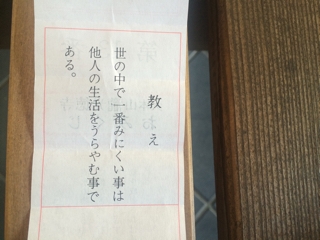 教え
世の中で一番みにくい事は
他人の生活をうらやむ事で
ある。